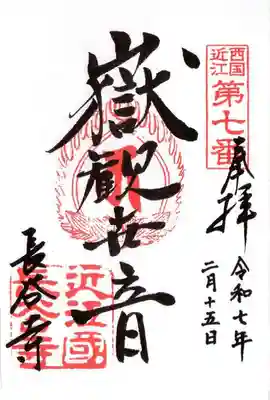 西国
近江
第七番
奉拝
令和七年
二月十五日
嶽観世音
長谷寺
近江国
長谷寺